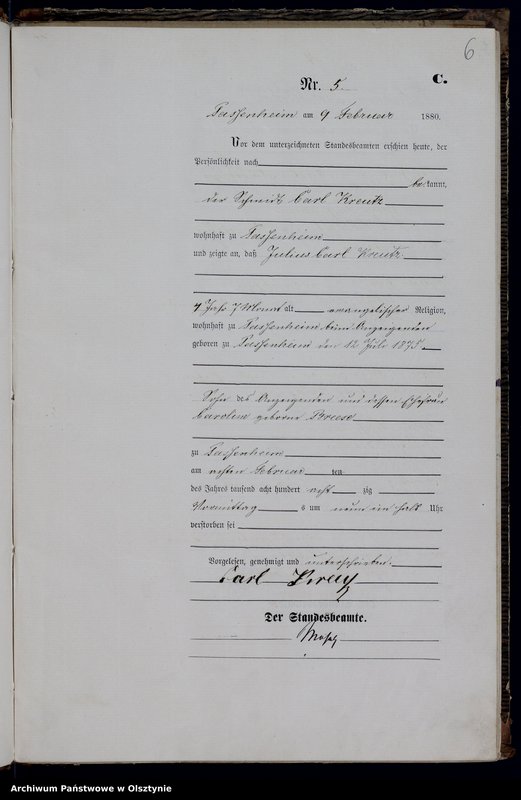 6
Nr. 5. C.
Passenheim am 9 Februar 1880.
Vor dem unterzeichneten Standesbeamten erschien heute, der
Persönlichkeit nach
bekannt,
der Schmidt Carl Kreutz
wohnhaft zu Passenheim
und zeigte an, daß Julius Carl Kreutz
7 Monat alt evangelischer Religion,
wohnhaft zu Passenheim beim Anzeigenden
geboren zu Passenheim den 12 Juli 1875
Sohn des Anzeigenden und dessen Ehefrau
Caroline geborne
zu Passenheim
am achten Februar ten
des Jahres tausend acht hundert acht zig
Vormittag s um neun ein halb Uhr
verstorben sei
Vorgelesen, genehmigt und unterschrieben.
Carl
Der Standesbeamte.
Archiwum Państwowe w Olsztynie